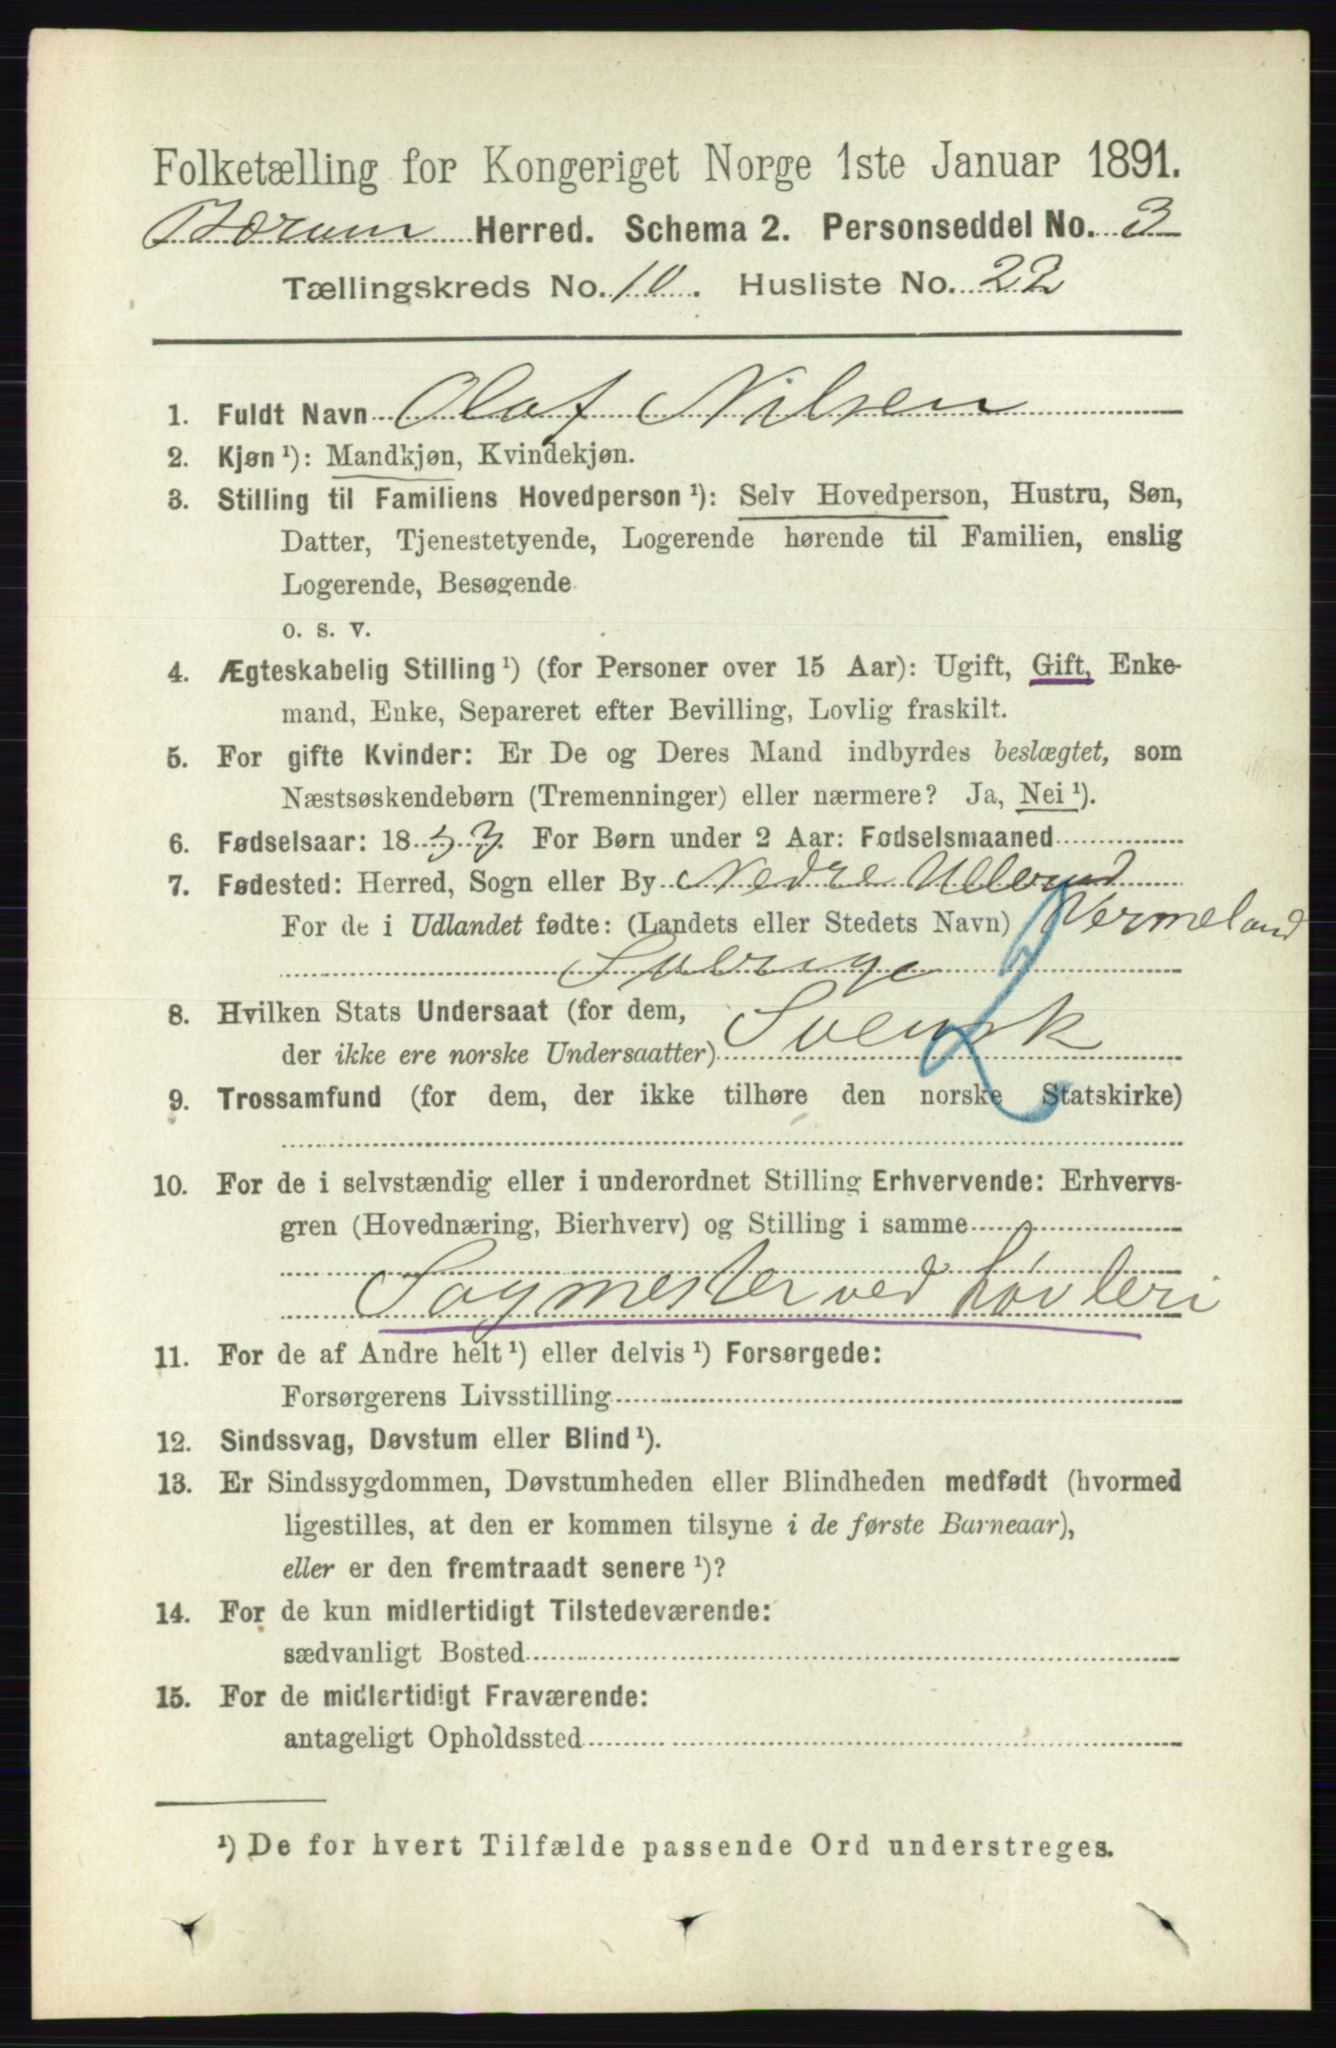 Folketælling for Kongeriget Norge 1ste Januar 1891.
Bærum Herred. Schema 2. Personseddel No. 3
Tællingskreds No. 10. Husliste No. 22
1. Fuldt Navn Olaf Nilsen
2. Kjøn¹): Mandkjøn, Kvindekjøn.
3. Stilling til Familiens Hovedperson¹): Selv Hovedperson, Hustru, Søn,
Datter, Tjenestetyende, Logerende hørende til Familien, enslig
Logerende, Besøgende
o. s. v.
4. Ægteskabelig Stilling¹) (for Personer over 15 Aar): Ugift, Gift, Enke-
mand, Enke, Separeret efter Bevilling, Lovlig fraskilt.
5. For gifte Kvinder: Er De og Deres Mand indbyrdes beslægtet, som
Næstsøskendebørn (Tremenninger) eller nærmere? Ja, Nei¹).
6. Fødselsaar: 1853. For Børn under 2 Aar: Fødselsmaaned
7. Fødested: Herred, Sogn eller By Nedre Ullerud
For de i Udlandet fødte: (Landets eller Stedets Navn) Vermeland
Sverige
8. Hvilken Stats Undersaat (for dem,
der ikke ere norske Undersaatter) Svensk
9. Trossamfund (for dem, der ikke tilhøre den norske Statskirke)
10. For de i selvstændig eller i underordnet Stilling Erhvervende: Erhvervs-
gren (Hovednæring, Bierhverv) og Stilling i samme
Sagmester ved høvleri
11. For de af Andre helt¹) eller delvis¹) Forsørgede:
Forsørgerens Livsstilling
12. Sindssvag, Døvstum eller Blind¹).
13. Er Sindssygdommen, Døvstumheden eller Blindheden medfødt (hvormed
ligestilles, at den er kommen tilsyne i de første Barneaar),
eller er den fremtraadt senere¹)?
14. For de kun midlertidigt Tilstedeværende:
sædvanligt Bosted
15. For de midlertidigt Fraværende:
antageligt Opholdssted
¹) De for hvert Tilfælde passende Ord understreges.